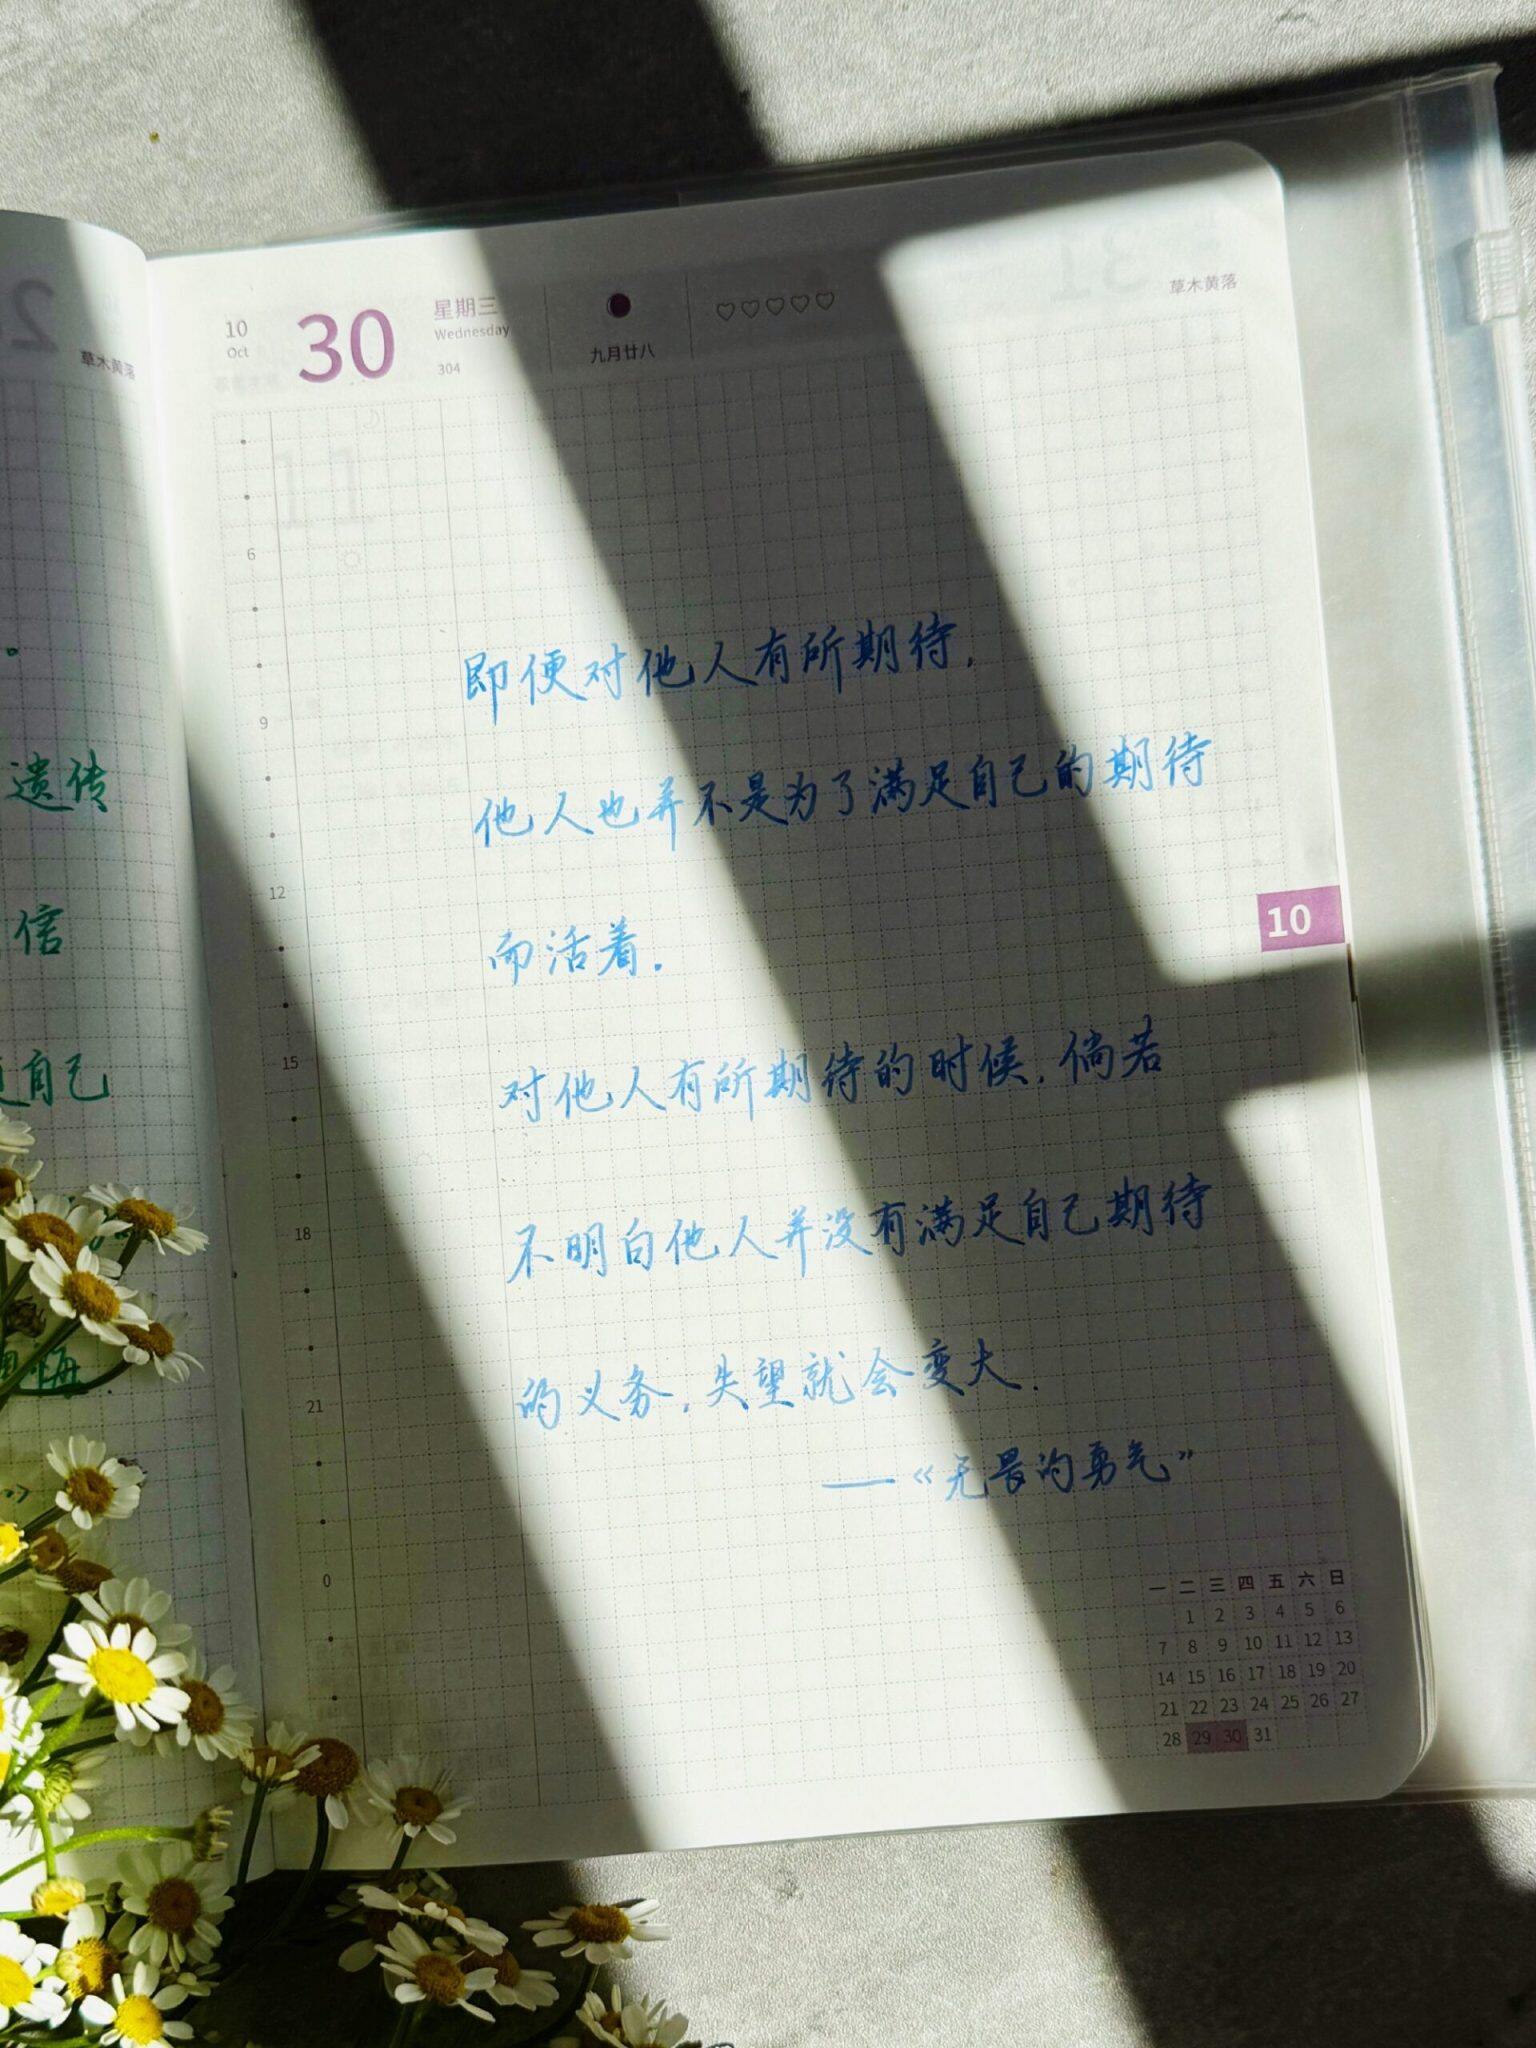 草木黄落
。
遗传
信
自己
10
Oct
30
星期三
Wednesday
304
九月廿八
草木黄落
6
9
12
15
18
21
0
即便对他人有所期待，
他人也并不是为了满足自己的期待
而活着。
对他人有所期待的时候，倘若
不明白他人并没有满足自己期待
的义务，失望就会变大。
——《无畏的勇气》
10
一 二 三 四 五 六 日
1 2 3 4 5 6
7 8 9 10 11 12 13
14 15 16 17 18 19 20
21 22 23 24 25 26 27
28 29 30 31